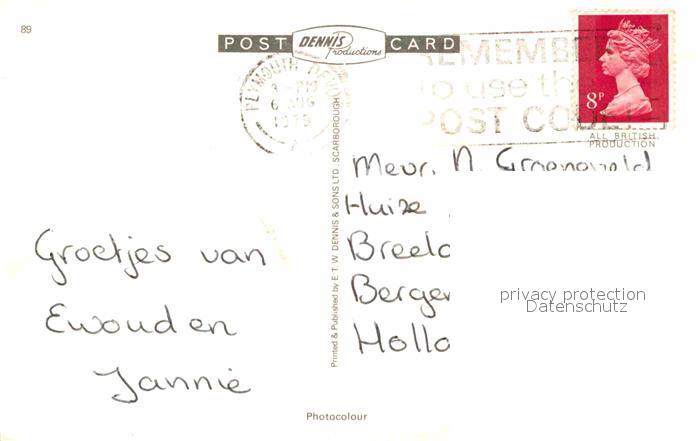 89
POST DENNIS Productions CARD
PLYMOUTH DEVON
3 - PM
6 AUG
1979
REMEMBER
to use the
POST CODE
8P
ALL BRITISH
PRODUCTION
Printed & Published by E. T. W. DENNIS & SONS LTD., SCARBOROUGH
Mevr. N. Groeneveld
Huize
Breel
Berge
Holl
Groetjes van
Ewoud en
Jannie
privacy protection
Datenschutz
Photocolour